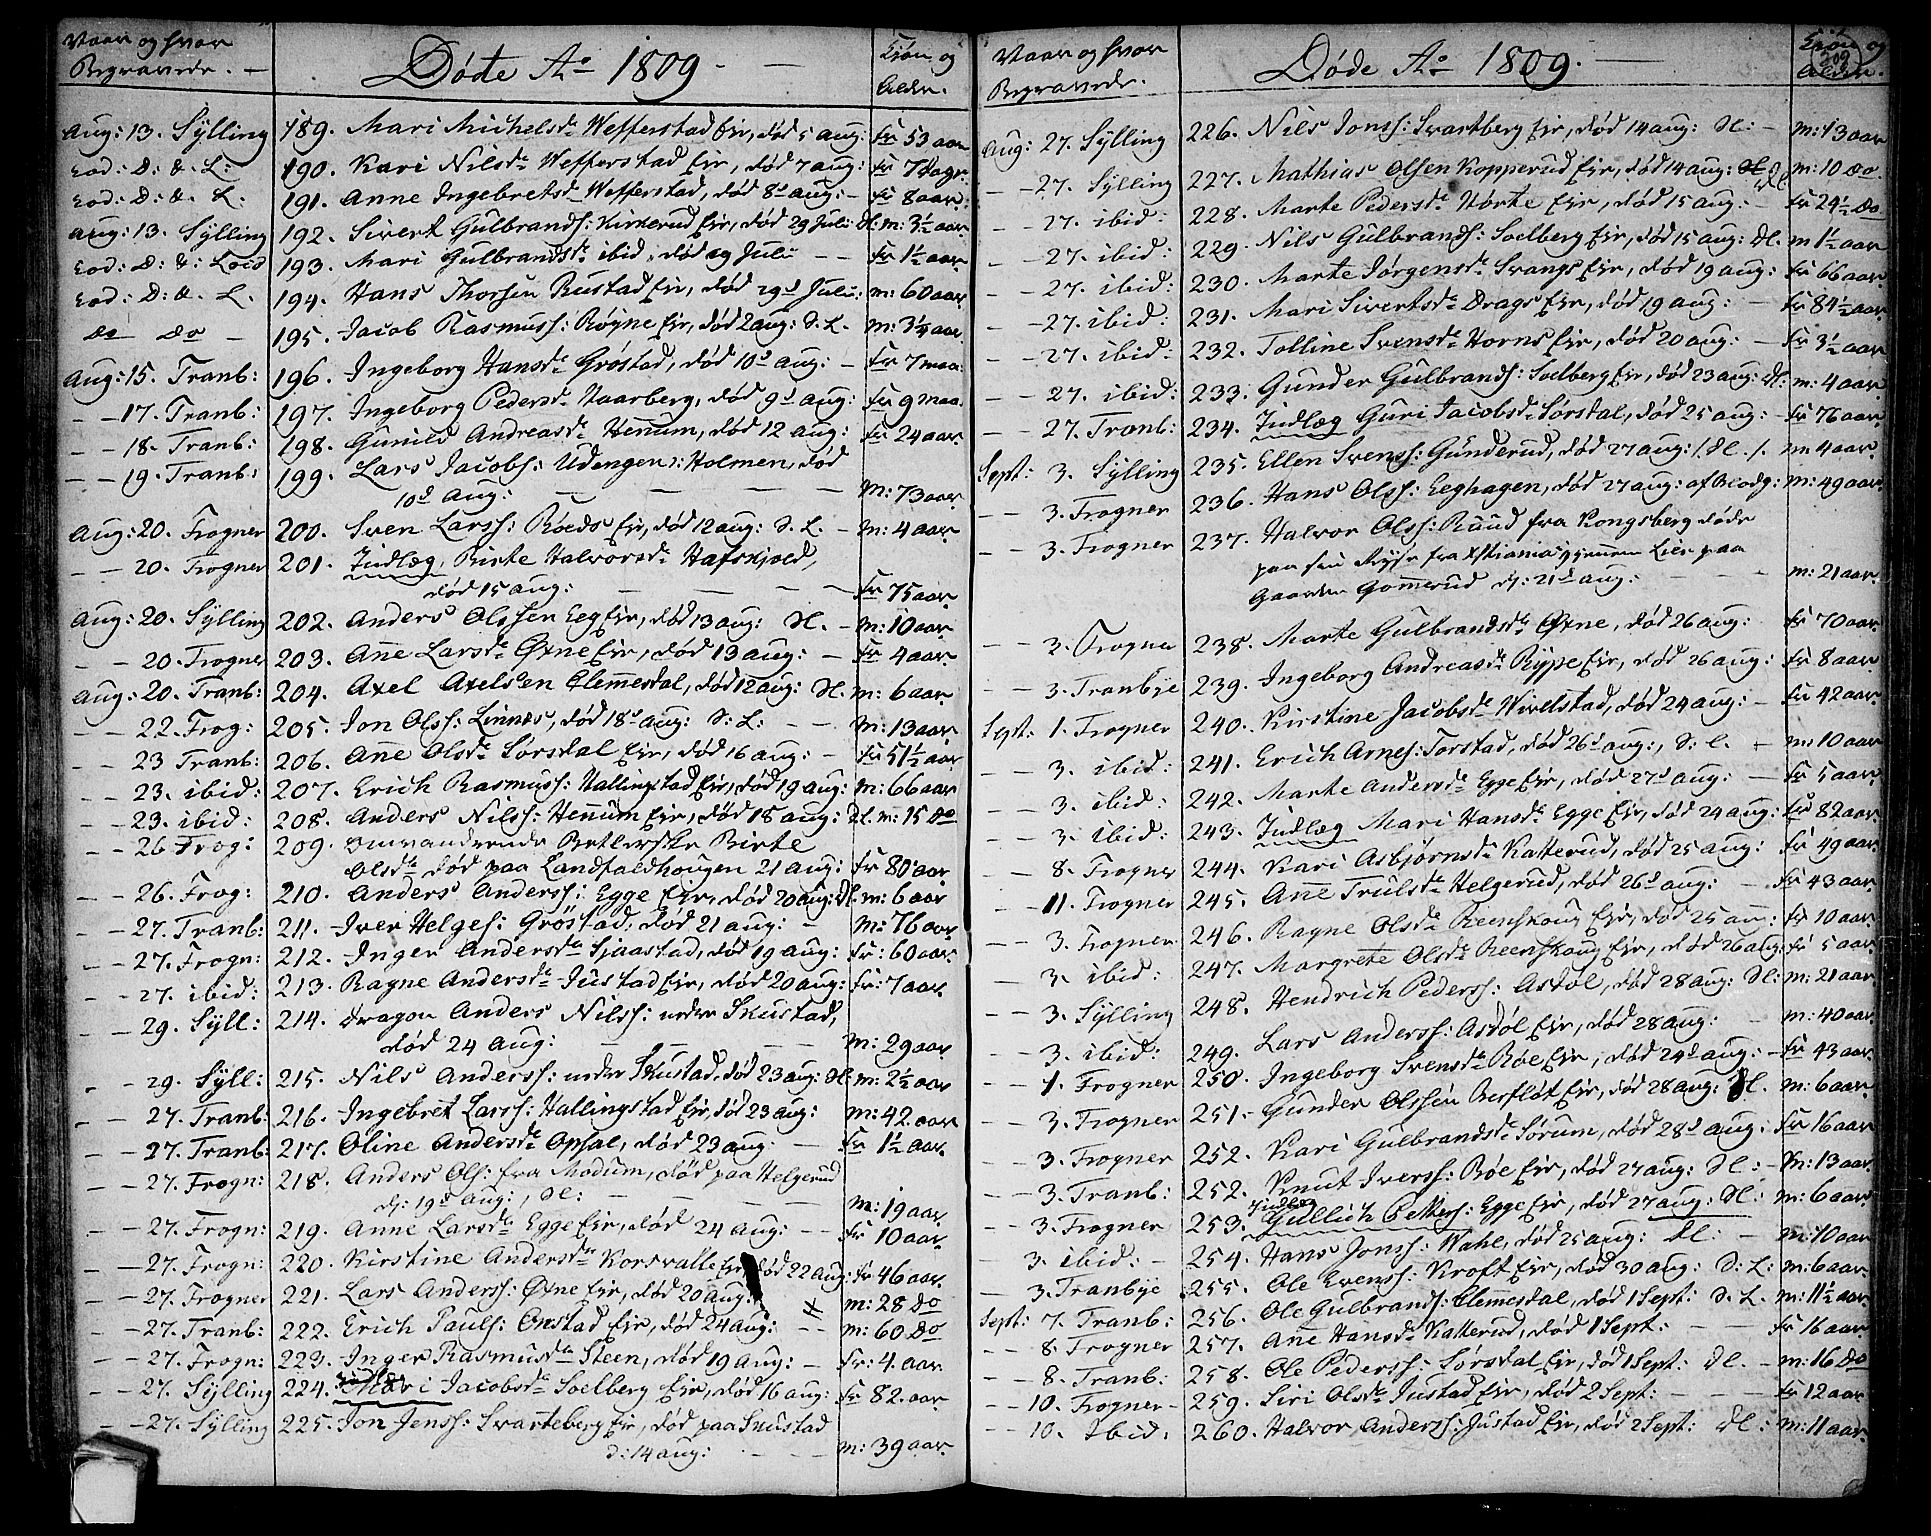 Vaar og hvor
Begravede. —
Døde Ao 1809. —
Kiøn og
Alder.
Aug: 13. Sylling 189. Mari Michelsd: Wefferstad Eir, død 5 aug: Fr 53 aar
Eod: D: & L: 190. Kari Nilsd: Wefferstad Eir, død 7 aug: Fr 7 Dage
Eod: D: & L: 191. Anne Ingebretsd: Wefferstad, død 8d aug: Fr 8 aar:
Aug: 13. Sylling 192. Sivert Gulbrands: Kinnerud Eir, død 29 Juli Dl: m: 3½ aar
Eod: D: &: Loco 193. Mari Gulbrandsd: ibid, død 29 Julii — — Fr 1½ aar
Eod: D: &. L. 194. Hans Thorsen Rustad Eir, død 29d Julii: m: 60 aar
do do — 195. Jacob Rasmuss: Røgne Eir, død 2 aug: D. L. m: 3¼ aar
Aug: 15. Tranb: 196. Ingeborg Hansd: Gröstad, død 10d aug: — Fr 7 maa:
— — 17. Tranb: 197. Ingeborg Pedersd: Waarberg, død 9d aug: Fr 9 maa.
— — 18. Tranb: 198. Gunild Andreasd: Hennum, død 12 aug: Fr 24 aar.
— — 19. Tranb: 199. Lars Jacobs: Udengen: Holmen, død
10d Aug: — — — m: 73 aar
Aug: 20. Frogner 200. Sven Larss: Röeds Eir, død 12 aug: D. L. — m: 4 aar.
— — 20. Frogner 201. Indlæg, Birte Halvorsd: Hafskjold,
død 15 aug: — — — Fr 75 aar.
Aug: 20. Sylling 202. Anders Olssen Eeg Eir, død 13 aug: Dl. — m: 10 aar
— — 20. Frogner 203. Ane Larsd: Øxne Eir, død 13 aug: — Fr 4 aar.
Aug: 20. Tranb: 204. Axel Axelsen Clemmestal, død 12 aug: Dl. m: 6 aar.
— — 22. Frog: 205. Jon Olss: Linnes, død 18d aug: D: L: — — m: 13 aar
— — 23 Tranb: 206. Ane Olsd: Sørsdal Eir, død 16 aug: — Fr 51½ aar
— — 23. ibid: 207. Erich Rasmuss: Hallingstad Eir, død 19 aug: m: 66 aar
— — 23. ibid: 208. Anders Nilss: Hennum Eir, død 18 aug: Dl. m: 15 Do
— — 26 Frog: 209. omvandrende Betlerske Birte
Olsd: død paa Landfaldhougen 21 aug: Fr 80 aar
— — 26. Frog: 210. Anders Anderss: Egge Eir, død 20 aug: Dl. m: 6 aar
— — 27. Tranb: 211. Iver Helges: Gröstad, død 21 aug: — m: 76 aar
— — 27. Frogn: 212. Inger Andersd: Sjaastad, død 19 aug: Fr: 60 aar.
— — 27. ibid: 213. Ragne Andersd: Justad Eir, død 20 aug: Fr: 7 aar.
— — 29. Syll: 214. Dragon Anders Nilss: under Skustad,
død 24 aug: — — — m: 29 aar
— — 29. Syll: 215. Nils Anderss: under Skustad, død 23 aug: Dl: m: 2½ aar
— — 27. Tranb: 216. Ingebret Larss: Hallingstad Eir, død 23 aug: m: 42. aar
— — 27. Tranb: 217. Oline Andersd: Opsal, død 23 aug — Fr 1½ aar.
— — 27. Frogn: 218. Anders Ols: fra Modum, død paa Helgerud
d: 19d aug:, Dl: — — — m: 19 aar
— — 27. Frogn: 219. Anne Larsd: Egge Eir, død 24 aug: — — Fr 10 aar
— — 27. Frogn: 220. Kirstine Andersd: Korsvalle Eir, død 22 aug: Fr 46 aar
— — 27. Frogner 221. Lars Anderss: Øxne Eir, død 20 aug: m: 28 Do
— — 27. Tranb: 222. Erich Pauls: Onstad Eir, død 24 aug: — — m: 60 Do
— — 27. Frogn: 223. Inger Rasmusd: Steen, død 19 aug: — Fr: 4. aar
— — 27. Sylling 224. Indlæg Mari Jacobsd: Soelberg Eir, død 16 aug: Fr 82. aar
— — 27. Sylling 225. Jon Jenss: Svarteberg Eir, død paa Skustad
d: 14 aug: — — m: 39 aar
Vaar og hvor
Begravede.
Døde Ao 1809. —
Kiøn og
Alder.
209
Aug: 27. Sylling 226. Nils Jonss: Svartberg Eir, død 14 aug: Dl: — m: 13 aar
— — 27. Sylling 227. Mathias Olsen Kopperud Eir, død 14 aug: Dl m: 10 Do
— — 27. ibid: 228. Marte Pedersd: Hörte Eir, død 15 aug: — Fr 24½ Do
— — 27. ibid: 229. Nils Gulbrands: Soelberg Eir, død 15 aug: Dl. m 1½ aar
— — 27. ibid: 230. Marte Jörgensd: Svangs Eir, død 19 aug: Fr 66 aar
— — 27. ibid: 231. Mari Sivertsd: Drags Eir, død 19 aug: — Fr 84½ aar
— — 27. ibid: 232. Tolline Svensd: Horns Eir, død 20 aug: — Fr 3½ aar
— — 27. ibid: 233. Gunder Gulbrands: Soelberg Eir, død 23 aug: Dl: m: 4 aar
— — 27. Tranb: 234. Indlæg Guri Jacobsd: Sørsdal, død 25 aug: Fr 76 aar
Sept: 3. Sylling 235. Ellen Svenss: Gunderud, død 27 aug: /: Dl :/ m: 4 aar
— — 3. Frogner 236. Hans Olss: Eeghagen, død 27 aug: af Blodg: m: 49 aar.
— — 3. Frogner 237. Halvor Olss: Ruud fra Kongsberg døde
paa sin Reyse fra Xstiania gjennem Lier paa
Gaarden Gomerud d: 21d aug: — — m: 21 aar.
— — 3. Frogner 238. Marte Gulbrandsd: Øxne, død 26 aug: Fr 70 aar.
— — 3. Tranbye 239. Ingeborg Andreasd: Rype Eir, død 26 aug: Fr 8 aar.
Sept: 1. Frogner 240. Kirstine Jacobsd: Wivelstad, død 24 aug: — Fr 42 aar.
— — 3. ibid: 241. Erich Arnes: Torstad, død 26d aug:, D: L. — m: 10 aar
— — 3. ibid: 242. Marte Andersd: Egge Eir, død 27d aug: — Fr 5 aar.
— — 3. ibid: 243. Indlæg Mari Hansd: Egge Eir, død 24 aug: Fr 82 aar.
— — 8. Frogner 244. Kari Asbjørnsd: Katterud, død 25 aug: Fr 49 aar.
— — 11. Frogner 245. Ane Trulsd: Helgerud, død 26d aug: — Fr 43 aar.
— — 3. Frogner 246. Ragne Olsd: Reenskoug Eir, død 25 aug: Fr 10 aar.
— — 3. ibid: 247. Margrete Olsd: Reenskoug Eir, død 26 aug: Fr 5 aar.
— — 3. Sylling 248. Hendrich Pederss: Asdøl, død 28 aug: Dl: m: 21 aar.
— — 3. ibid: 249. Lars Anderss: Asdøl Eir, død 28 aug: — m: 40 aar.
— — 1. Frogner 250. Ingeborg Svensd: Røe Eir, død 24d aug: — Fr 43 aar
— — 3. Frogner 251. Gunder Olssen Berfløt Eir, død 28 aug: Dl. m: 6 aar.
— — 3. Frogner 252. Kari Gulbrandsd: Sørum, død 28d aug: Fr 16 aar
— — 3. Tranb: 252. Knut Iverss: Røe Eir, død 27 aug: Dl: — m: 13 aar
— — 3. Frogner 253. Indlæg Gullich Petters: Egge Eir, død 27 aug: Dl: m: 6 aar.
— 3. ibid: — 254. Hans Jonss: Wahe, død 25 aug: Dl: — m: 10 aar
— — 3. Tranbye 255. Ole Evenss: Kroft Eir, død 30 aug: D: L: m: 6 aar.
Sept: 7. Tranb: 256. Ole Gulbrands: Clemmesdal, død 1 Sept: D. L. m: 11½ aar.
— — 8. Frogner 257. Ane Hansd: Katterud, død 1 Sept: — — Fr 16 aar
— — 8. Tranb: 258. Ole Pederss: Sørsdal Eir, død 1 Sept: Dl. — m: 16 Do
— — 10. Frogner — 259. Siri Olsd: Justad Eir, død 2 Sept: — — Fr 12 aar
— — 10. Ibid. 260. Halvor Anderss: Justad Eir, død 2 Sept: Dl: m: 11 aar.